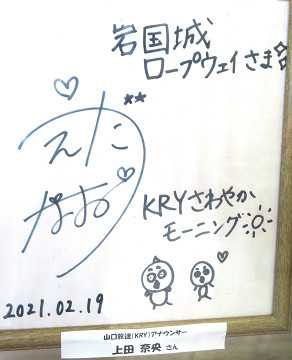 岩国城
ロープウェイさま
うえだ
なお
KRYさわやか
モーニング
2021.02.19
山口放送(KRY)アナウンサー
上田 奈央 さん